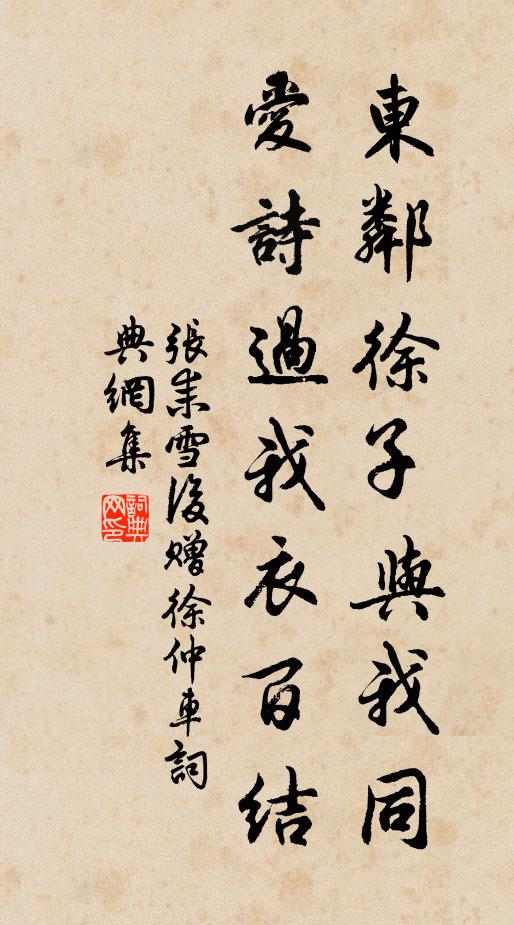 東鄰徐子與我同
愛詩過我衣百結
張耒雪後贈徐仲車詞
典網集
詞典網印